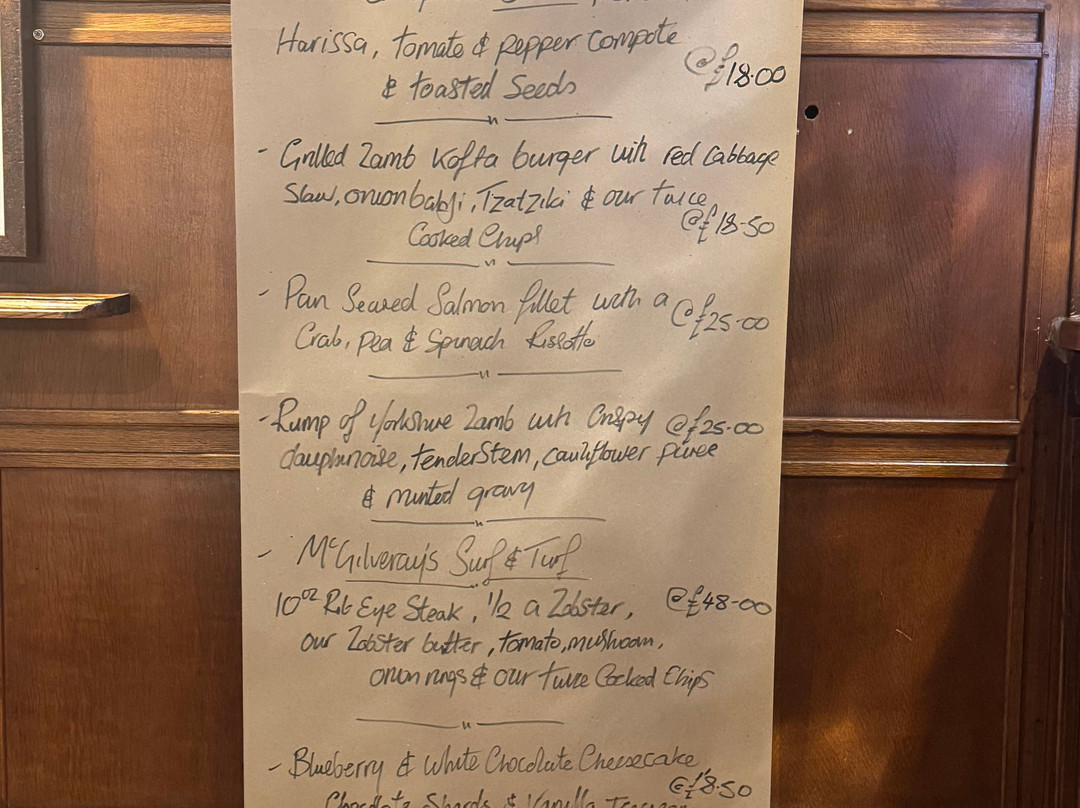 Harissa, tomato & pepper compote
& toasted Seeds @ £18.00
- Grilled Lamb Kofta burger with red Cabbage
Slaw, onion bahji, Tzatziki & our twice
Cooked Chips @ £18-50
- Pan Seared Salmon fillet with a
Crab, pea & Spinach Rissotto @ £25-00
- Rump of Yorkshire Lamb with Crispy @ £25-00
dauphinoise, tenderstem, cauliflower puree
& minted gravy
- McGilveray's Surf & Turf
10oz Rib Eye Steak, 1/2 a Lobster, @ £48-00
our Lobster butter, tomato, mushroom,
onion rings & our twice Cooked Chips
- Blueberry & White Chocolate Cheesecake,
Chocolate Shards & Vanilla @ £8.50